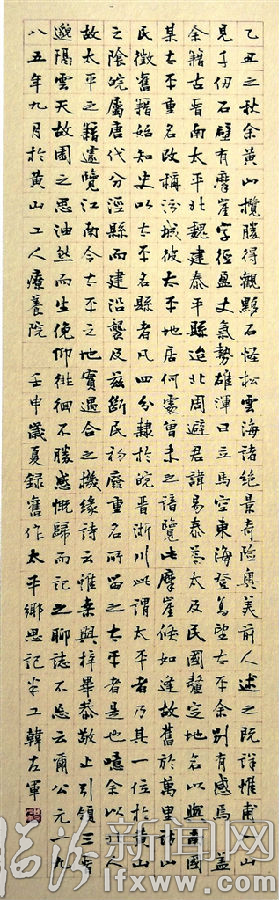 乙丑之秋余黄山攬勝得觀點石怪松雲海諸絕景奇險奧美前人述之既詳惟甫入山
見千仞石壁有摩崖字徑盈丈氣勢雄渾曰立馬空東海登高望太平余別有感焉蓋
余籍古晉南太平北魏建泰平縣迨北周避君諱易泰為太及民國釐定地名以與南國
某太平重名改稱汾城彼太平地居何處曾未之諳覽此摩崖倏如逢故舊於萬里訪山
民徵舊籍始知史以太平名縣者凡四分隸於皖晉浙川此謂太平者乃其一位於黄山
之陰皖屬唐代分涇縣而建沿襲及茲斷民初廢重名所留之太平者是也噫余以晉人
故太平之籍遠覽江南今太平之地實遇合之機緣詩云惟桑與梓畢恭敬止引領三晉
邈隔雲天故園之思油然而生俛仰徘徊不勝感慨歸而記之聊誌不忘云爾公元一九
八五年九月於黄山工人療養院 壬申歲夏録舊作太平鄉思記 半工韓左軍
临汾新闻网
www.lfxww.com